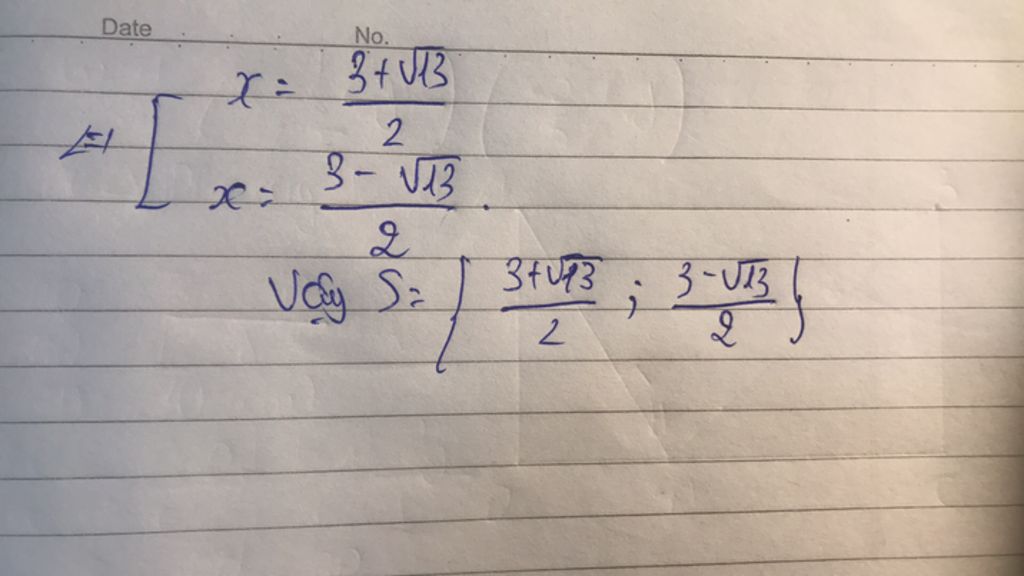 Date No.
⇔ [ x = (3+√13)/2
x = (3-√13)/2 .
Vậy S = { (3+√13)/2 ; (3-√13)/2 }